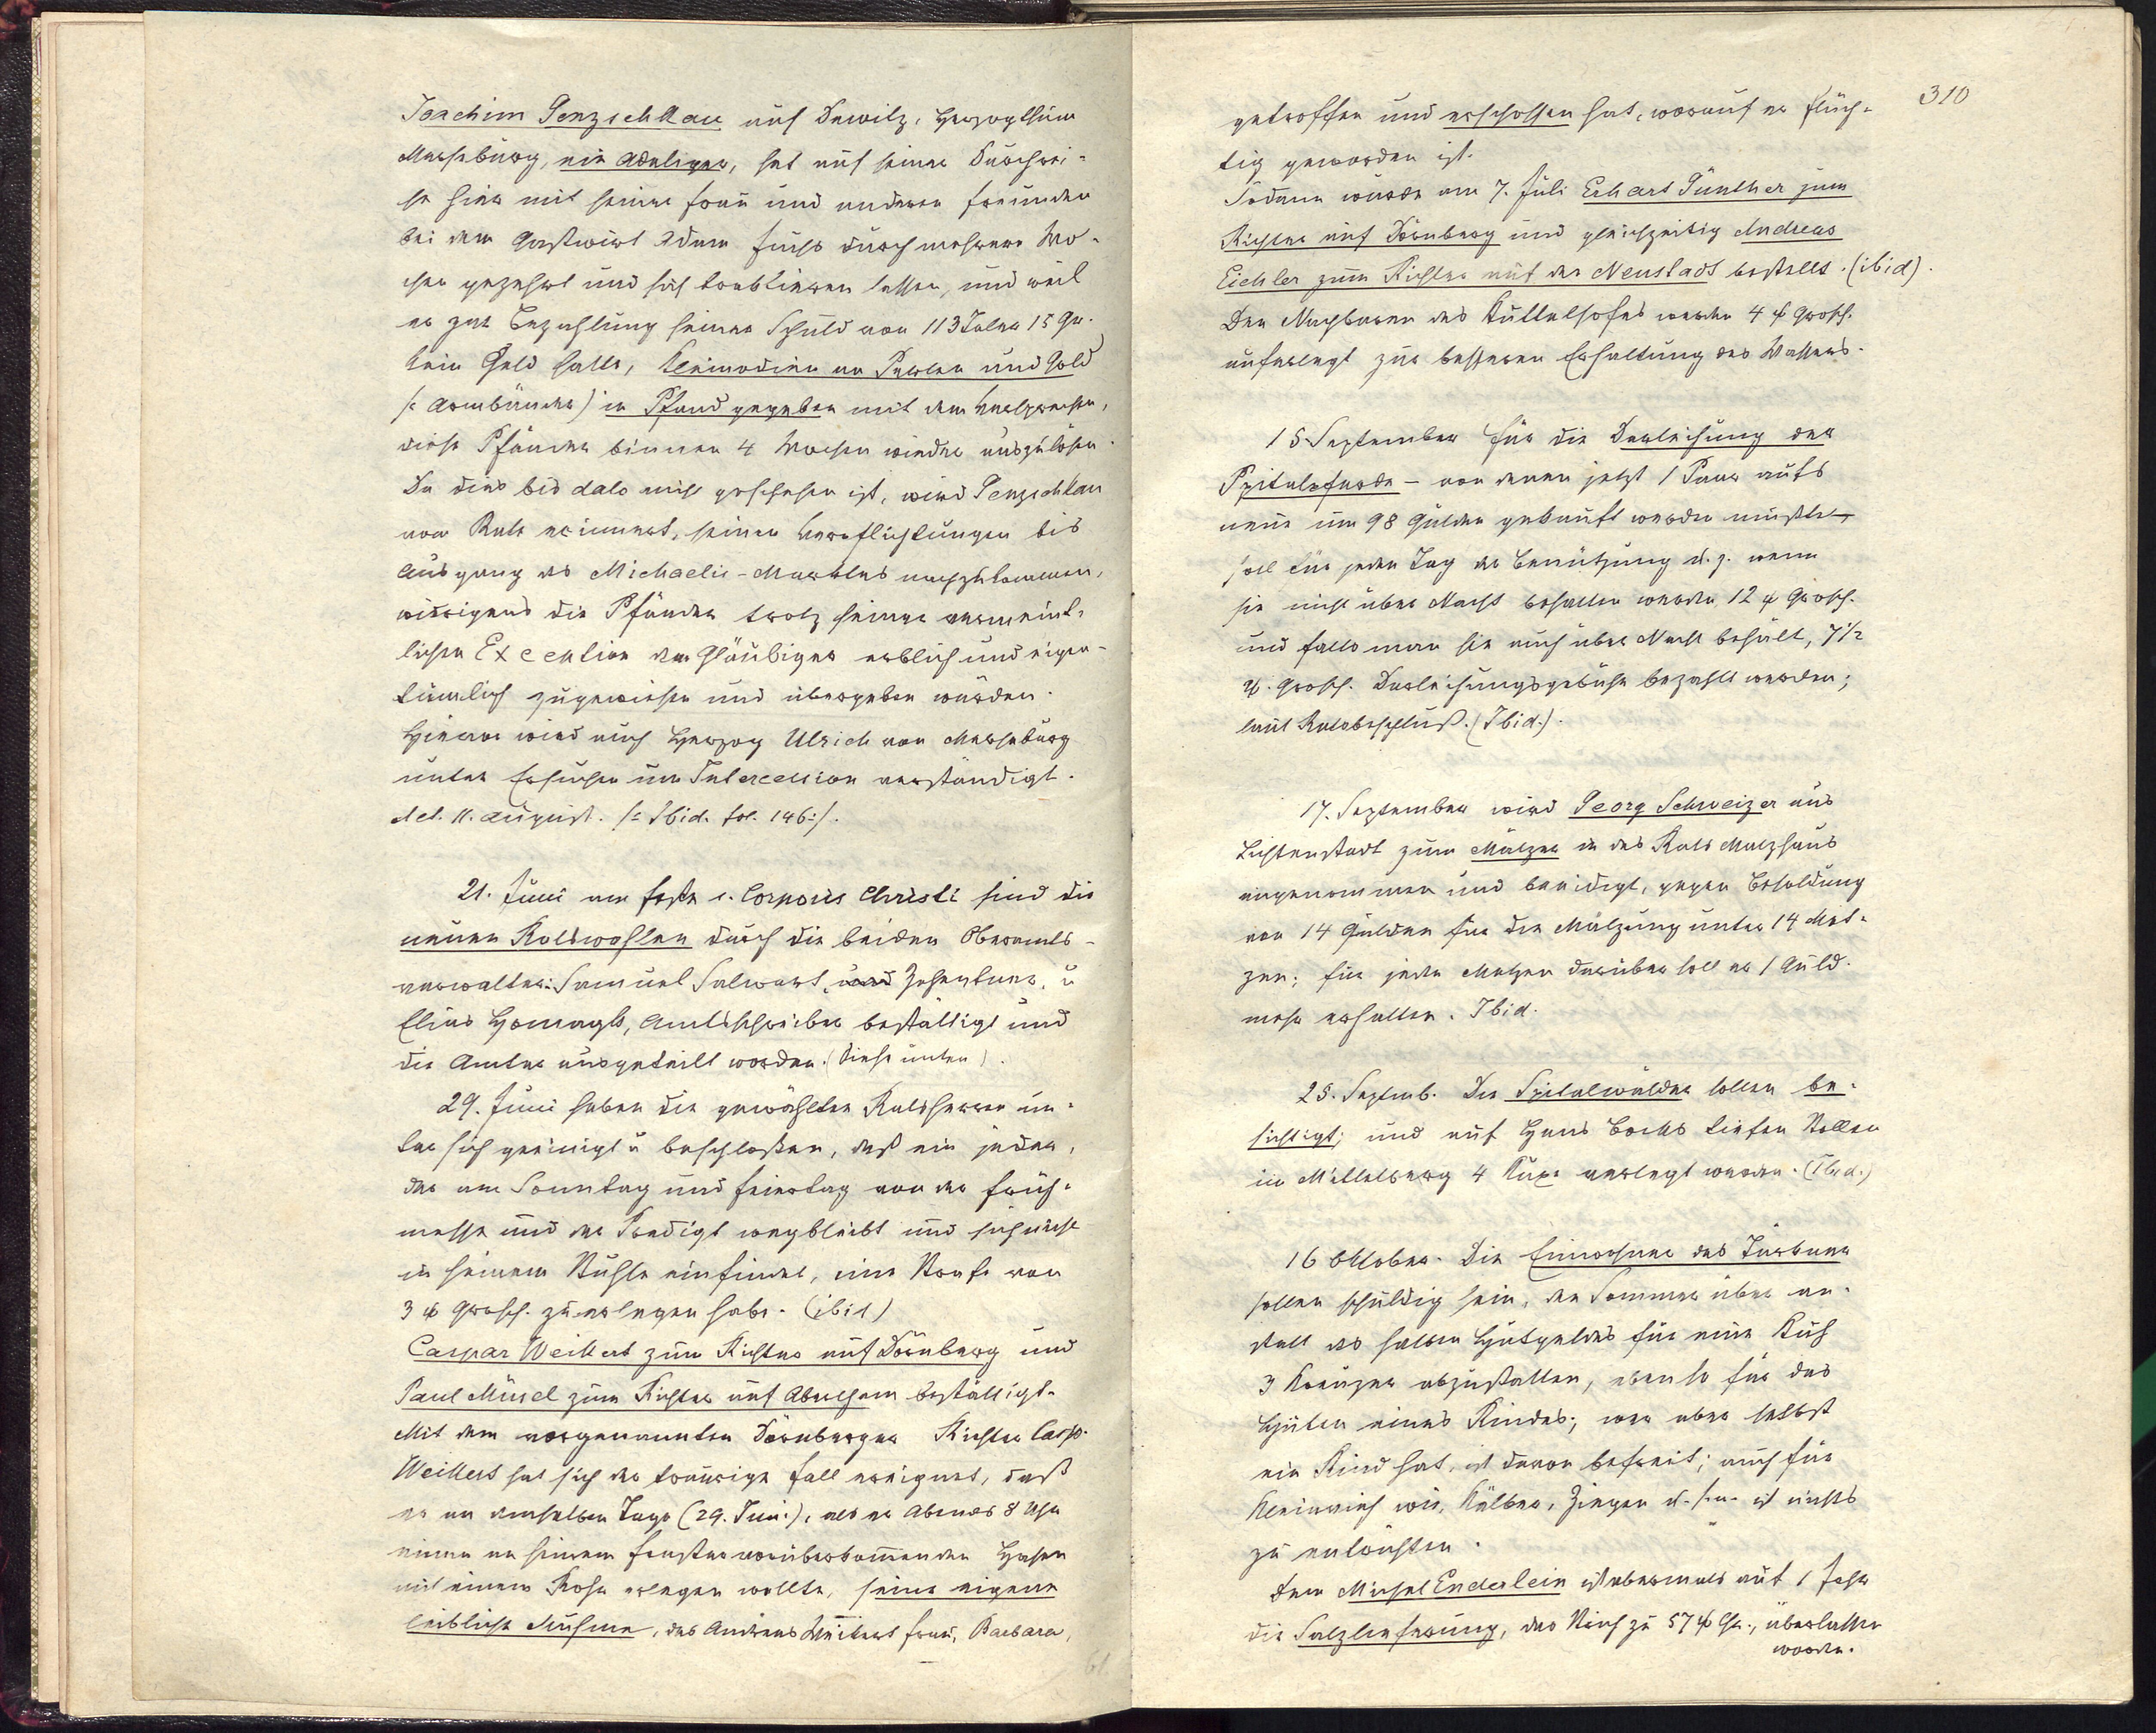 Joachim Penzschkau auf Dewitz, Herzogthum
Merseburg, ein Adeliger, hat auf seiner Durchrei-
se hier mit seiner Frau und anderen Freunden
bei dem Gastwirt Adam Fuchs durch mehrere Wo-
chen gezehrt und sich traktieren lassen, und weil
er zur Bezahlung seiner Schuld von 113 Taler 15 Gr.
kein Geld hatte, Kleinodien an Perlen und Gold
(: Armbänder) in Pfand gegeben mit dem Versprechen,
diese Pfänder binnen 4 Wochen wieder auszulösen.
Da dies bis dato nicht geschehen ist, wird Penzschkau
vom Rate erinnert, seinen Verpflichtungen bis
Ausgang des Michaelis-Marktes nachzukommen,
widrigens die Pfänder trotz seiner vermeint-
lichen Exception dem Gläubiger erblich und eigen-
tümlich zugewiesen und übergeben würden.
Hievon wird auch Herzog Ulrich von Merseburg
unter Ersuchen um Intercession verständigt.
dct. 11. August. /: Ibid. fol. 146:/.
21. Juni am Feste s. Corporis Christi sind die
neuen Ratswahlen durch die beiden Oberamts-
verwalter: Samuel Salwart, und Zehentner, u
Elias , Amtsschreiber bestättigt und
die Ämter ausgeteilt worden. (Siehe unten).
29. Juni haben die gewählten Ratsherren un-
ter sich geeinigt u beschloßen, daß ein jeder,
der am Sonntag und Feiertag von der Früh-
messe und der Predigt wegbleibt und sich nicht
in seinem Stuhle einfindet, eine Strafe von
3 w Grosch. zu erlegen habe. (ibid)
Caspar Weikert zum Richter auf Dörnberg und
Paul Müsel zum Richter auf Abertham bestättigt.
Mit dem vorgenannten Dörnberger Richter Casp.
Weikert hat sich der traurige Fall ereignet, daß
er an demselben Tage (29. Juni), als er Abends 8 Uhr
einen an seinem Fenster vorüberkommenden Hasen
mit einem Rohr erlegen wollte, seine eigene
leibliche Muhme, des Andreas Weikert Frau, Barbara,
310
getroffen und erschossen hat, worauf er flüch-
tig geworden ist.
Sodann wurde am 7. Juli Erhart Günther zum
Richter auf Dörnberg und gleichzeitig Andreas
Eichler zum Richter auf der Neustadt bestellt. (ibid).
Den Nachbaren des Kuttelhofes werden 4 w Grosch.
auferlegt zur besseren Erhaltung des Wassers.
15 September Für die Darleihung der
Spitalpferde - von denen jetzt 1 Paar aufs
neue um 98 Gulden gekauft werden mußte -
soll für jeden Tag der Benützung u. z. wenn
sie nicht über Nacht behalten werden 12 w Grosch.
und falls man sie auch über Nacht behält, 7½
w. Grosch. Darleihungsgebühr bezahlt werden;
laut Ratsbeschluß. (Ibid.).
17. September wird Georg Schweizer aus
Lichtenstadt zum Mälzer in das Rats Malzhaus
angenommen und beeidigt, gegen Besoldung
von 14 Gulden für die Mälzung unter 14 Met-
zen; für jeden Metzen darüber soll er 1 Guld.
mehr erhalten. Ibid.
25. Septemb. Die Spitalwälder sollen be-
sichtigt; und auf Hans Bocks tiefen Stollen
im Mittelberg 4 Kuxe verlegt werden. (Ibid.)
16 Oktober. Die Einwohner des Türkner
sollen schuldig sein, den Sommer über an-
statt des halben Hutgeldes für eine Kuh
3 Kreuzer abzustatten, ebenso für das
Hüten eines Rindes; wer aber selbst
ein Rind hat, ist davon befreit; auch für
Kleinvieh wie, Kälber, Ziegen u. s. w. ist nichts
zu entrichten.
Dem Michel Enderlein ist abermals auf 1 Jahr
die Salzlieferung, das Stück zu 57 w Gr., überlassen
worden.